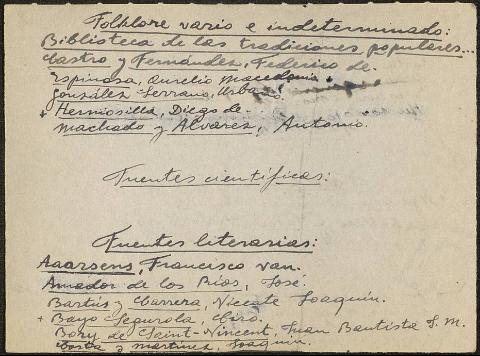 Folklore vario e indeterminado:
Biblioteca de las tradiciones populares...
Castro y Fernández, Federico de.
Espinosa, Aurelio Macedonio.
González Serrano, Urbano.
+ Hermosilla, Diego de.
Machado y Álvarez, Antonio.
Fuentes científicas:
Fuentes literarias:
Aaarsens, Francisco van.
Amador de los Ríos, José.
Bastús y Carrera, Vicente Joaquín.
+ Bayo Segurola, Ciro.
Bory de Saint-Vincent, Juan Bautista J. M.
Costa y Martínez, Joaquín.